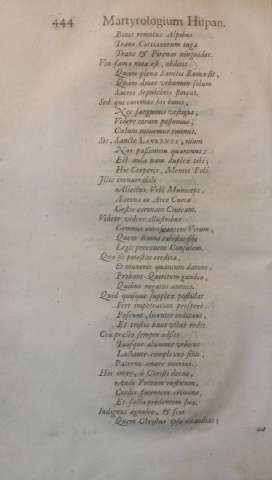 444 Martyrologium Hispan.
Bitis remotus Alpibus
Trans Cottianorum iuga
Trans & Pirenas ninguidas.
Vix fama nota est, abditis
Quam plena Sanctis Roma sit,
Quam dives urbanum solum
Sacris Sepulchris floreat.
Sed qui caremus his bonis,
Nec sanguinis vestigia,
Videre coram possumus,
Cælum intuemur eminus.
Sic, Sancte LAVRENTI, tuam
Nos passionem quærimus:
Est aula nam duplex tibi,
Hic Corporis, Mentis Poli.
Illic inenarrabili
Allectus Vrbi Municeps,
Aeternæ in Arce Curiæ
Gestas coronam Civicam.
Videor videre illustribus
Gemmis coruscantem Virum,
Quem Roma cælestis sibi
Legit perennem Consulem.
Quæ sit potestas credita,
Et muneris quantum datum,
Probant Quiritum gaudia,
Quibus rogatus annuis.
Quod quisque supplex postulat
Fert impetratum prospere:
Poscunt, iocantur, indicant,
Et tristis haud ullus redit.
Ceu præsto semper adsies
Tuosque alumnos urbicos
Lactante complexus sinu,
Paterno amore nutrias.
Hos inter, ò Christi decus,
Audi Poetam rusticum,
Cordis fatentem crimina,
Et facta prodentem sua.
Indignus agnosco, & scio
Quem Christus ipse exaudiat;